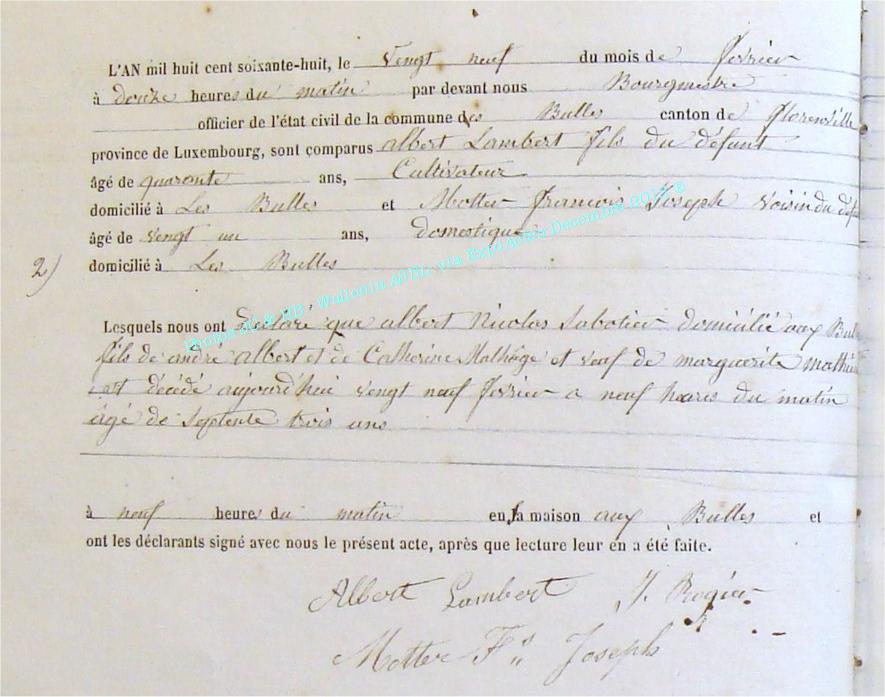 L'AN mil huit cent soixante-huit, le vengt neuf du mois de fevrier
à douze heures du matin par devant nous Bourgmestre
officier de l'état civil de la commune des Bulles canton de florenville
province de Luxembourg, sont comparus albert Lambert fils du défunt
âgé de quaronte ans, Cultivateur
domicilié à Les Bulles et Motter françois Joseph voisin du
âgé de vengt un ans, domestique
2)
domicilié à Les Bulles
Lesquels nous ont declaré que albert Nicolas Sabotier domicilié aux
fils de andré albert et de Catherine et veuf de marguerite
est décédé aujourd'hui vengt neuf fevrier a neuf heures du matin
âgé de septente trois ans
à neuf heures du matin en la maison aux Bulles et
ont les déclarants signé avec nous le présent acte, après que lecture leur en a été faite.
Albert Lambert J. Rogier
Motter Fs Joseph